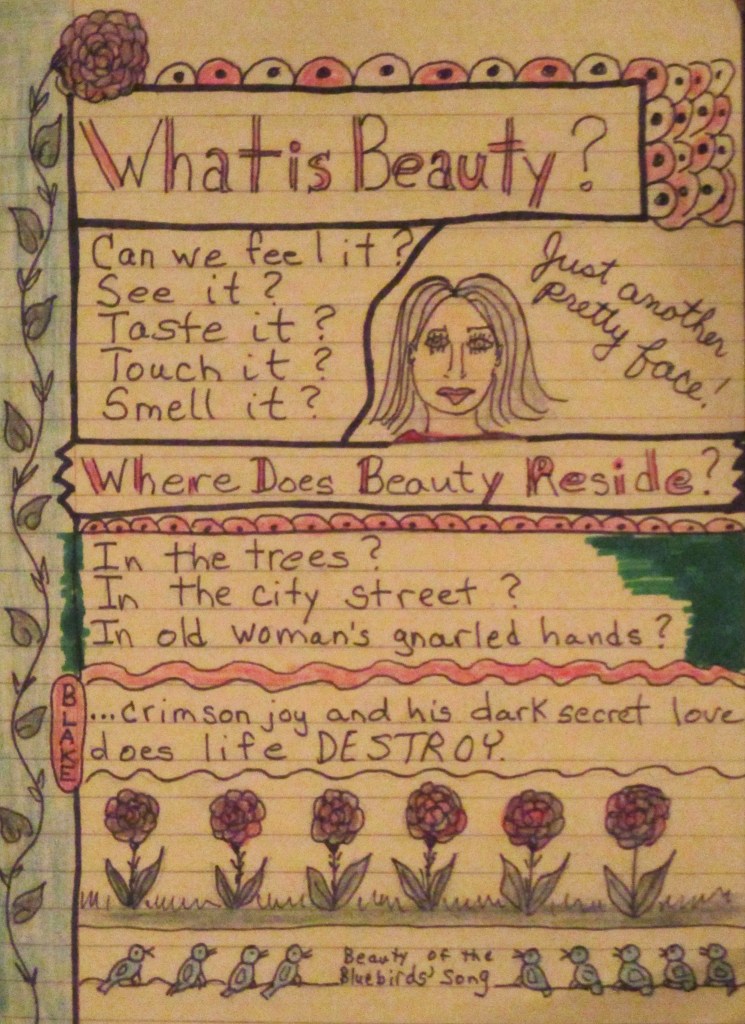 What is Beauty?
Can we feel it?
See it?
Taste it?
Touch it?
Smell it?
Just another
pretty face!
Where Does Beauty Reside?
In the trees?
In the city street?
In old woman's gnarled hands?
BLAKE
...crimson joy and his dark secret love
does life DESTROY.
Beauty of the
Bluebirds' Song